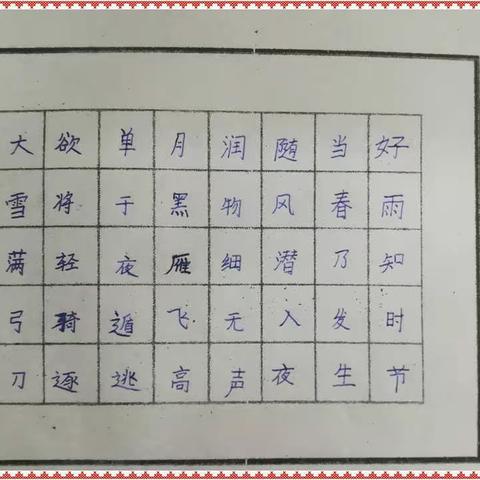 好雨知时节
当春乃发生
随风潜入夜
润物细无声
月黑雁飞高
单于夜遁逃
欲将轻骑逐
大雪满弓刀